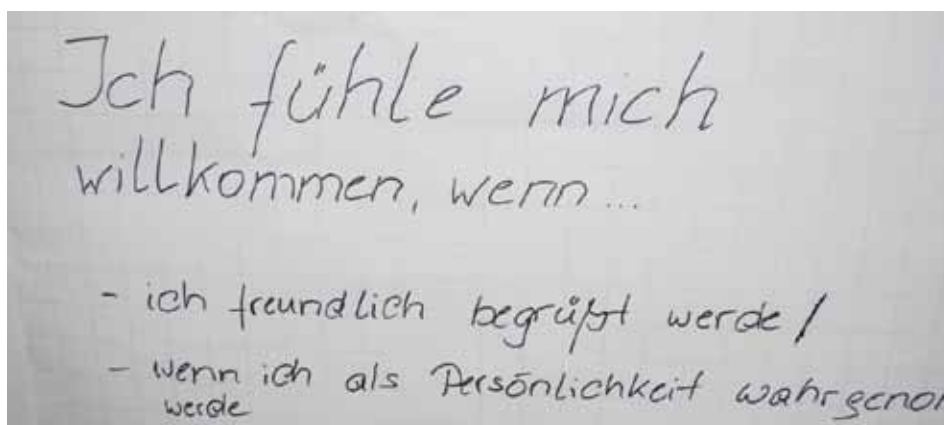 Ich fühle mich
willkommen, wenn ...
- ich freundlich begrüßt werde /
- wenn ich als Persönlichkeit wahrgeno
werde